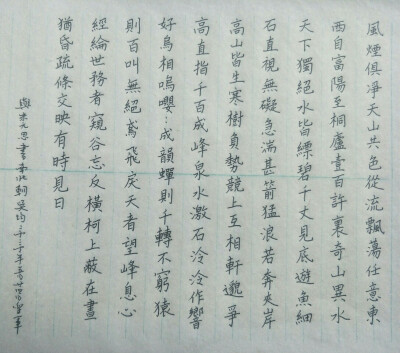 風煙俱淨天山共色從流飄蕩任意東
西自富陽至桐廬壹百許裏奇山異水
天下獨絕水皆縹碧千丈見底遊魚細
石直視無礙急湍甚箭猛浪若奔夾岸
高山皆生寒樹負勢競上互相軒邈爭
高直指千百成峰泉水激石泠泠作響
好鳥相鳴嚶嚶成韻蟬則千轉不窮猿
則百叫無絕鳶飛戾天者望峰息心
經綸世務者窺谷忘反橫柯上蔽在晝
猶昏疏條交映有時見日
與朱元思書 南北朝吳均